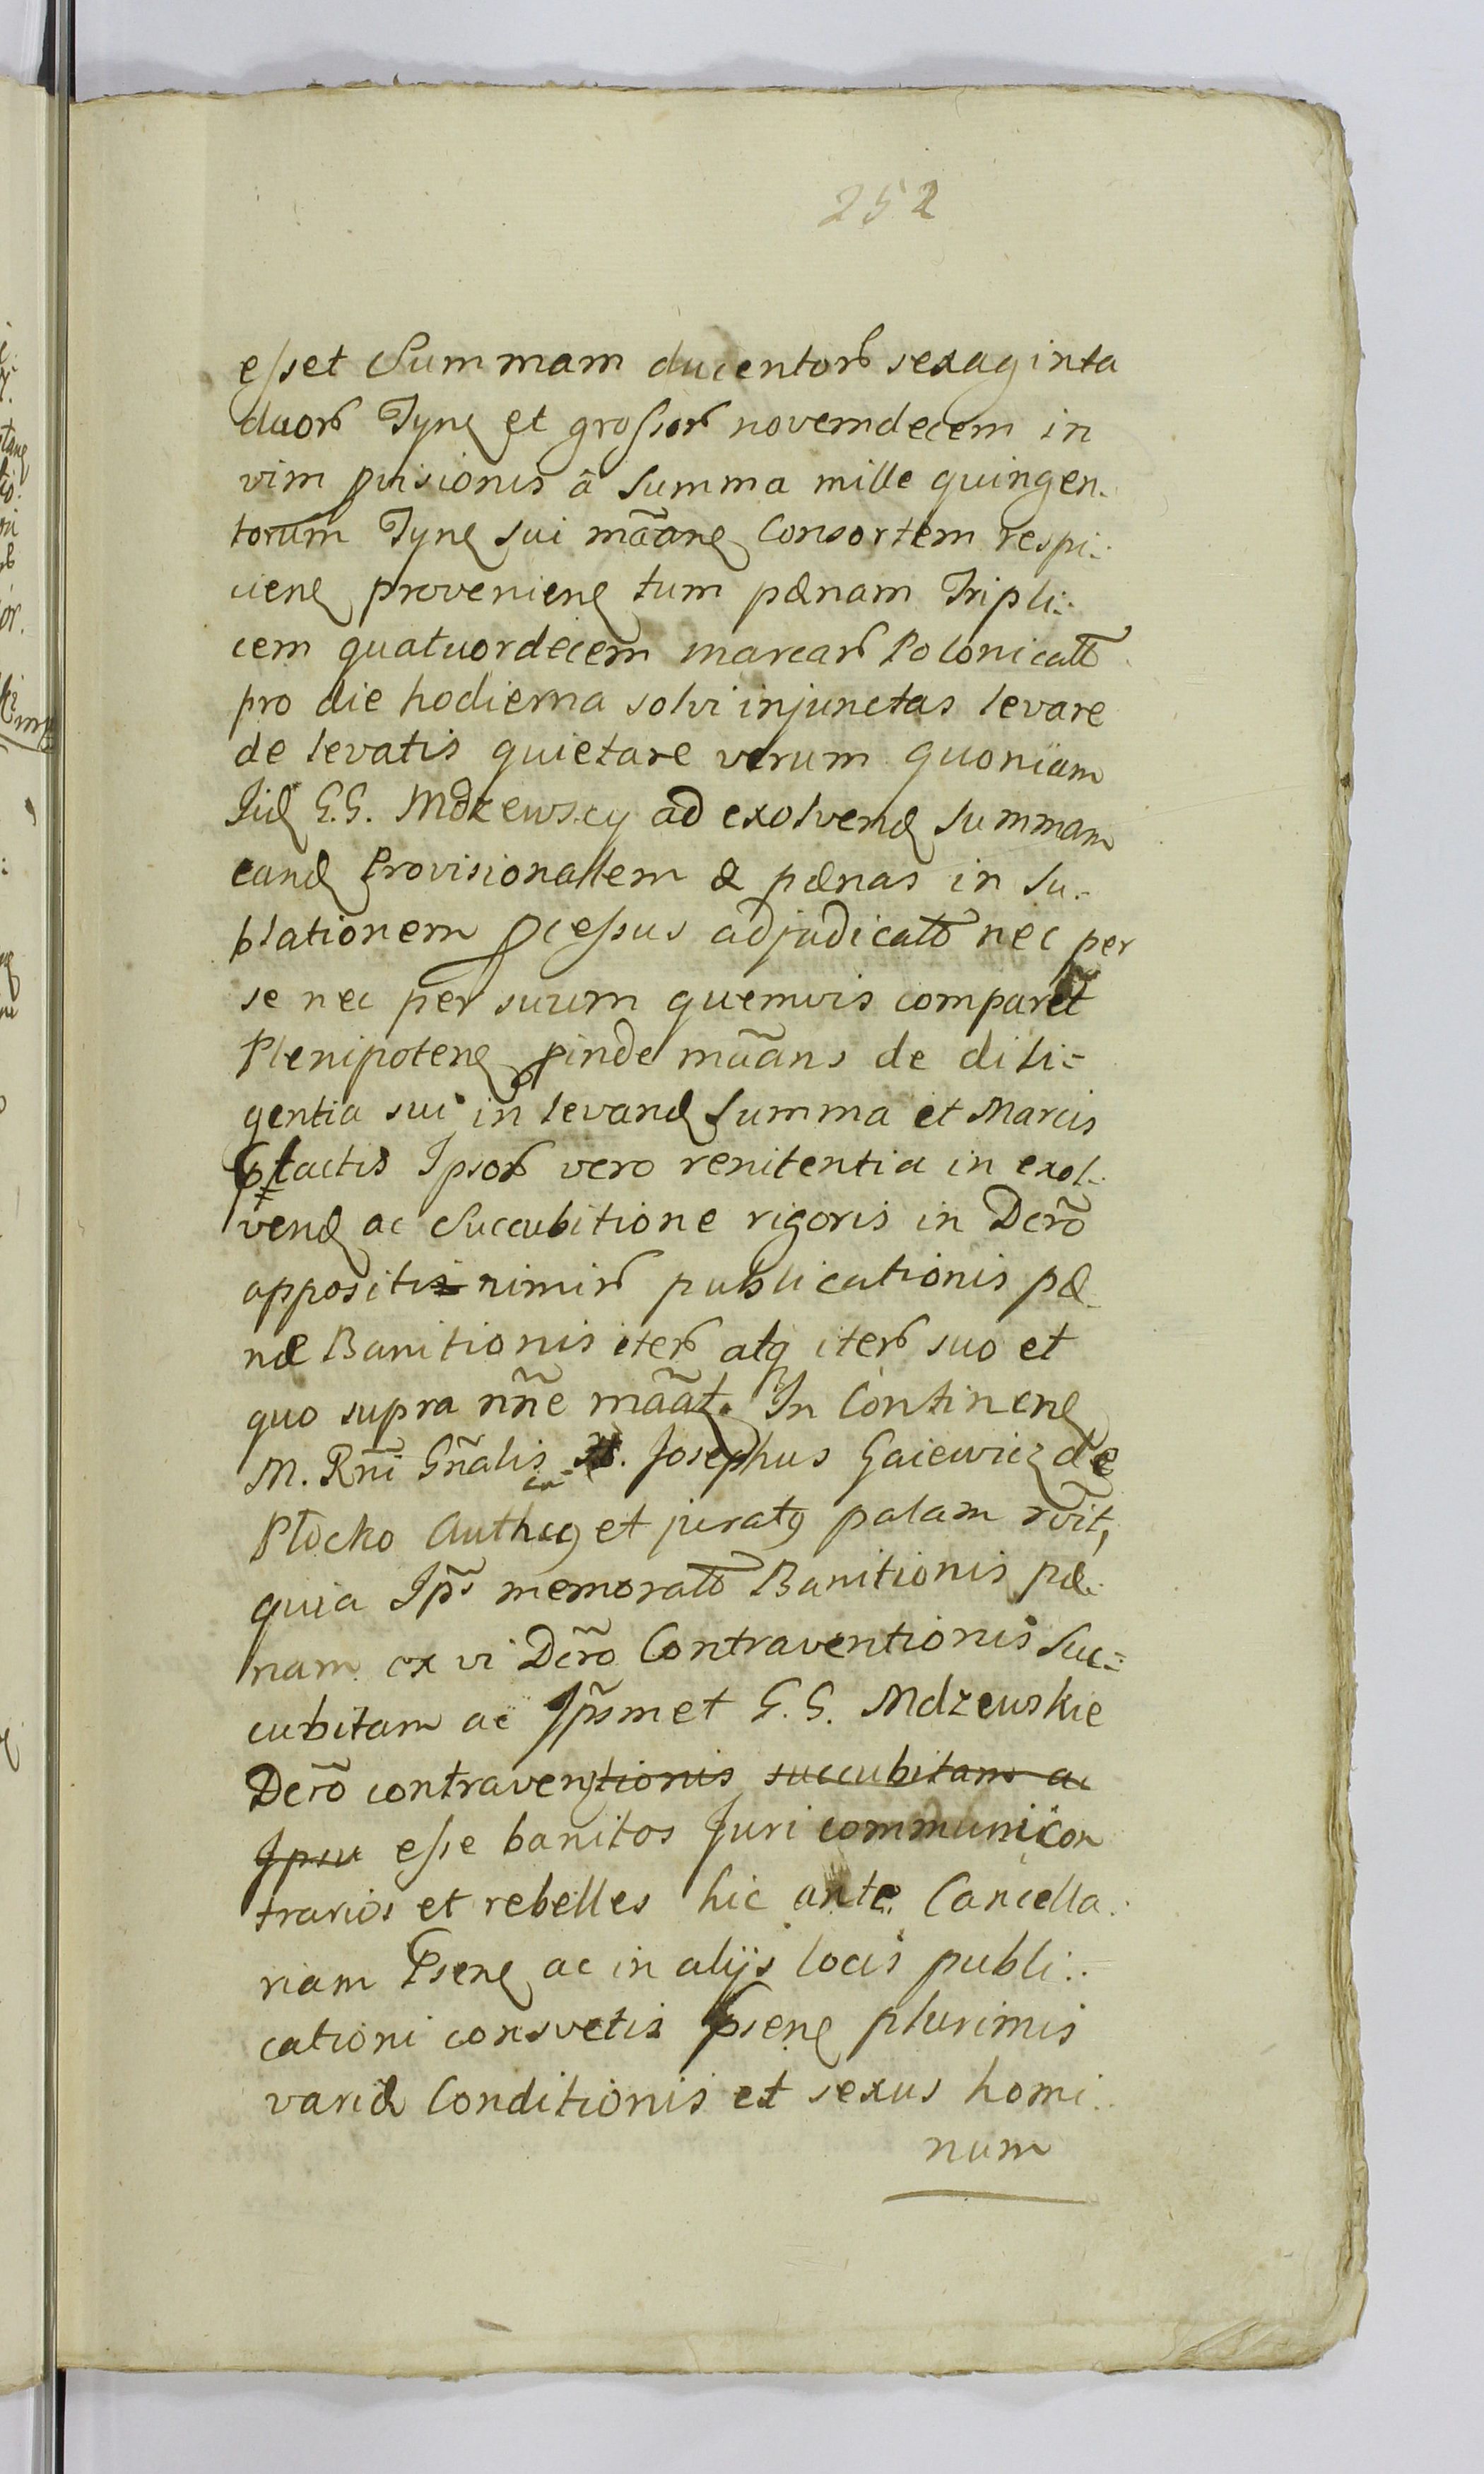 252
esset Summam ducentorʒ sexaginta
duorʒ Tyn̄ et grossorʒ novemdecem in
vim p̱visionis â Summa mille quingen.
torum Tyn̄ sui mãan̄ Consortem respi:
cien̄ provenien̄ tum pænam Tripli:
cem quatuordecem marcarʒ Polonicalʒ
pro die hodierna solvi injunctas levare
de levatis quietare verum quoniam
Iid̄ G.G. Mdzewscy ad exolvend̄ Summam
eand̄ Provisionalem & pænas in Su:
blationem P̱cessus adjudicatʒ nec per
se nec per suum quemvis comparet
Plenipoten̄ p̱inde mãans de dili=
gentia sui in levand̄ Summa et Marcis
p̱tactis Ipsorʒ vero renitentia in exol:
vend̄ ac Succubitione rigoris in Dcrõ
appositi nimirʒ publicationis pæ
næ Banitionis iterʒ atq iterʒ suo et
quo supra nñe mãat. In Continen̄
M. Rñi Gñalis Josephus Gaiewicz de
Płocko Authcꝰ et juratꝰ palam rc̃it,
quia Ip̃s memoratʒ Banitionis pæ:
nam ex vi Dcrõ Contraventionis Suc=
cubitam ac Ip̃smet G.G. Mdzewskie
Dcrõ contraventionis succubitam ac
Ipsu esse banitos Juri communi con
trarios et rebelles hic ante Cancella:
riam P̱sen̄ ac in alijs locis publi:
cationi consvetis P̱sen̄ plurimis
variæ Conditionis et sexus homi:
num